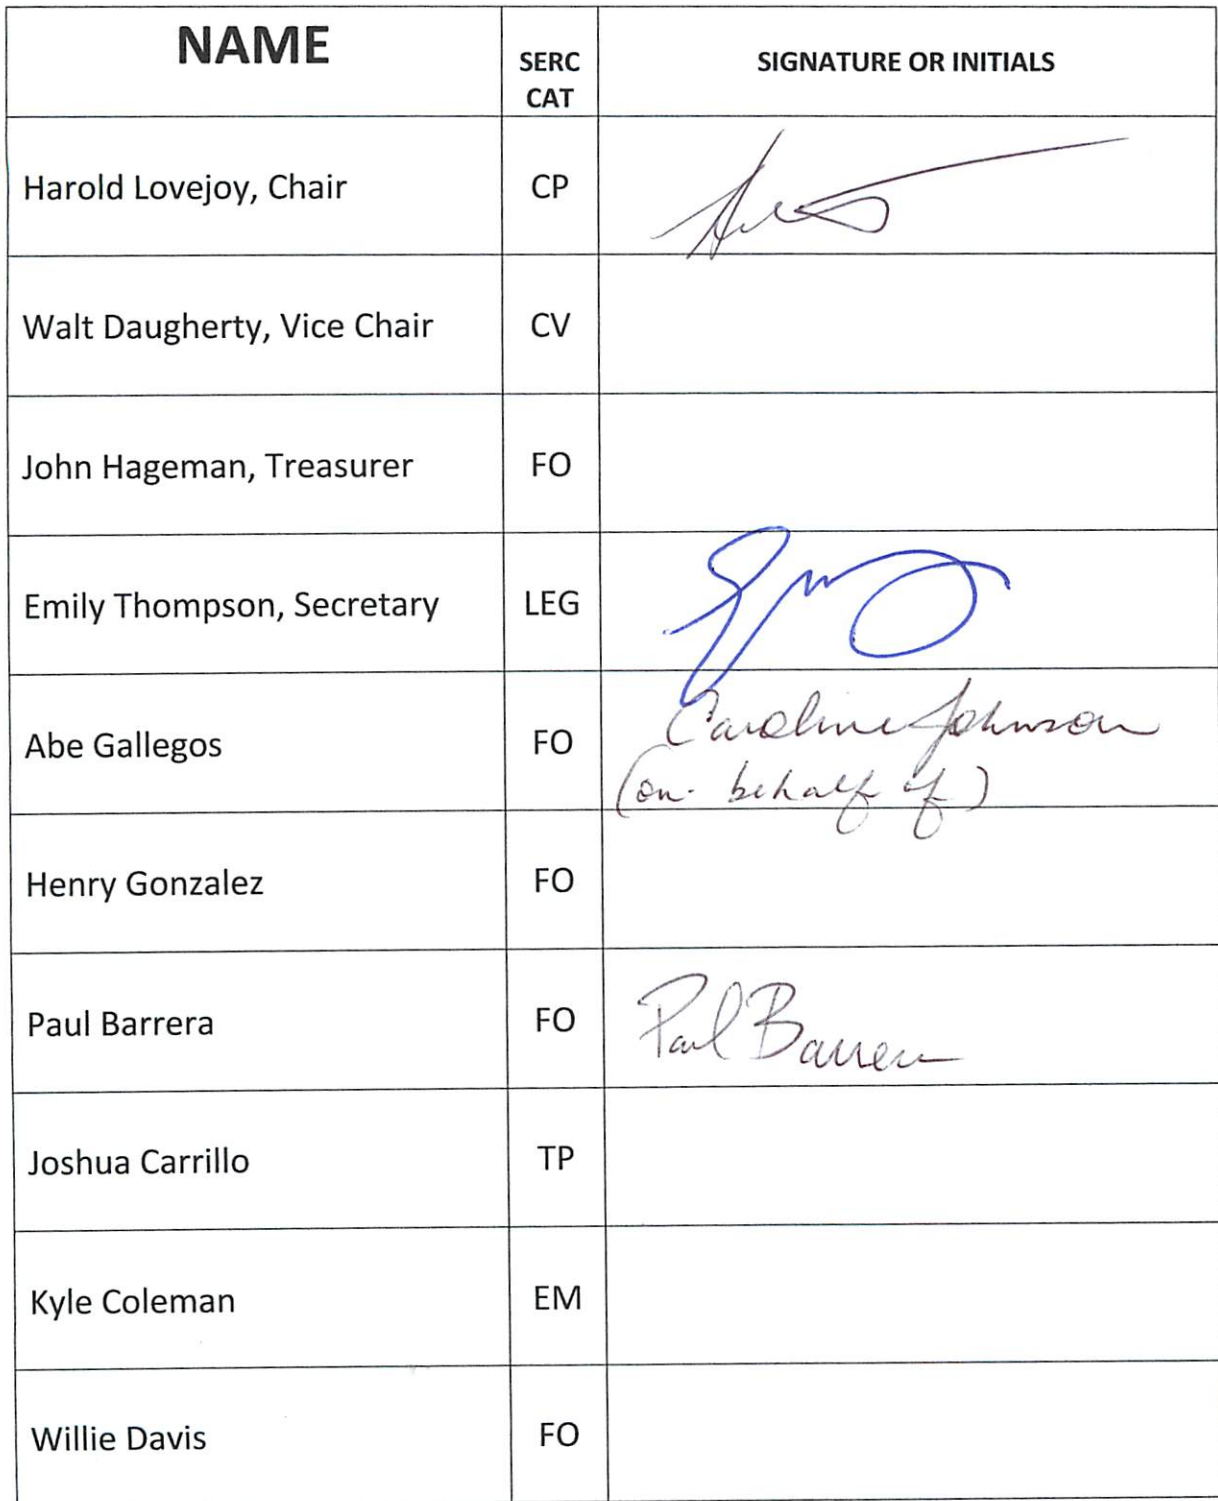 NAME SERC CAT SIGNATURE OR INITIALS
Harold Lovejoy, Chair CP
Walt Daugherty, Vice Chair CV
John Hageman, Treasurer FO
Emily Thompson, Secretary LEG
Abe Gallegos FO Caroline Johnson
(on behalf of)
Henry Gonzalez FO
Paul Barrera FO Paul Barrera
Joshua Carrillo TP
Kyle Coleman EM
Willie Davis FO